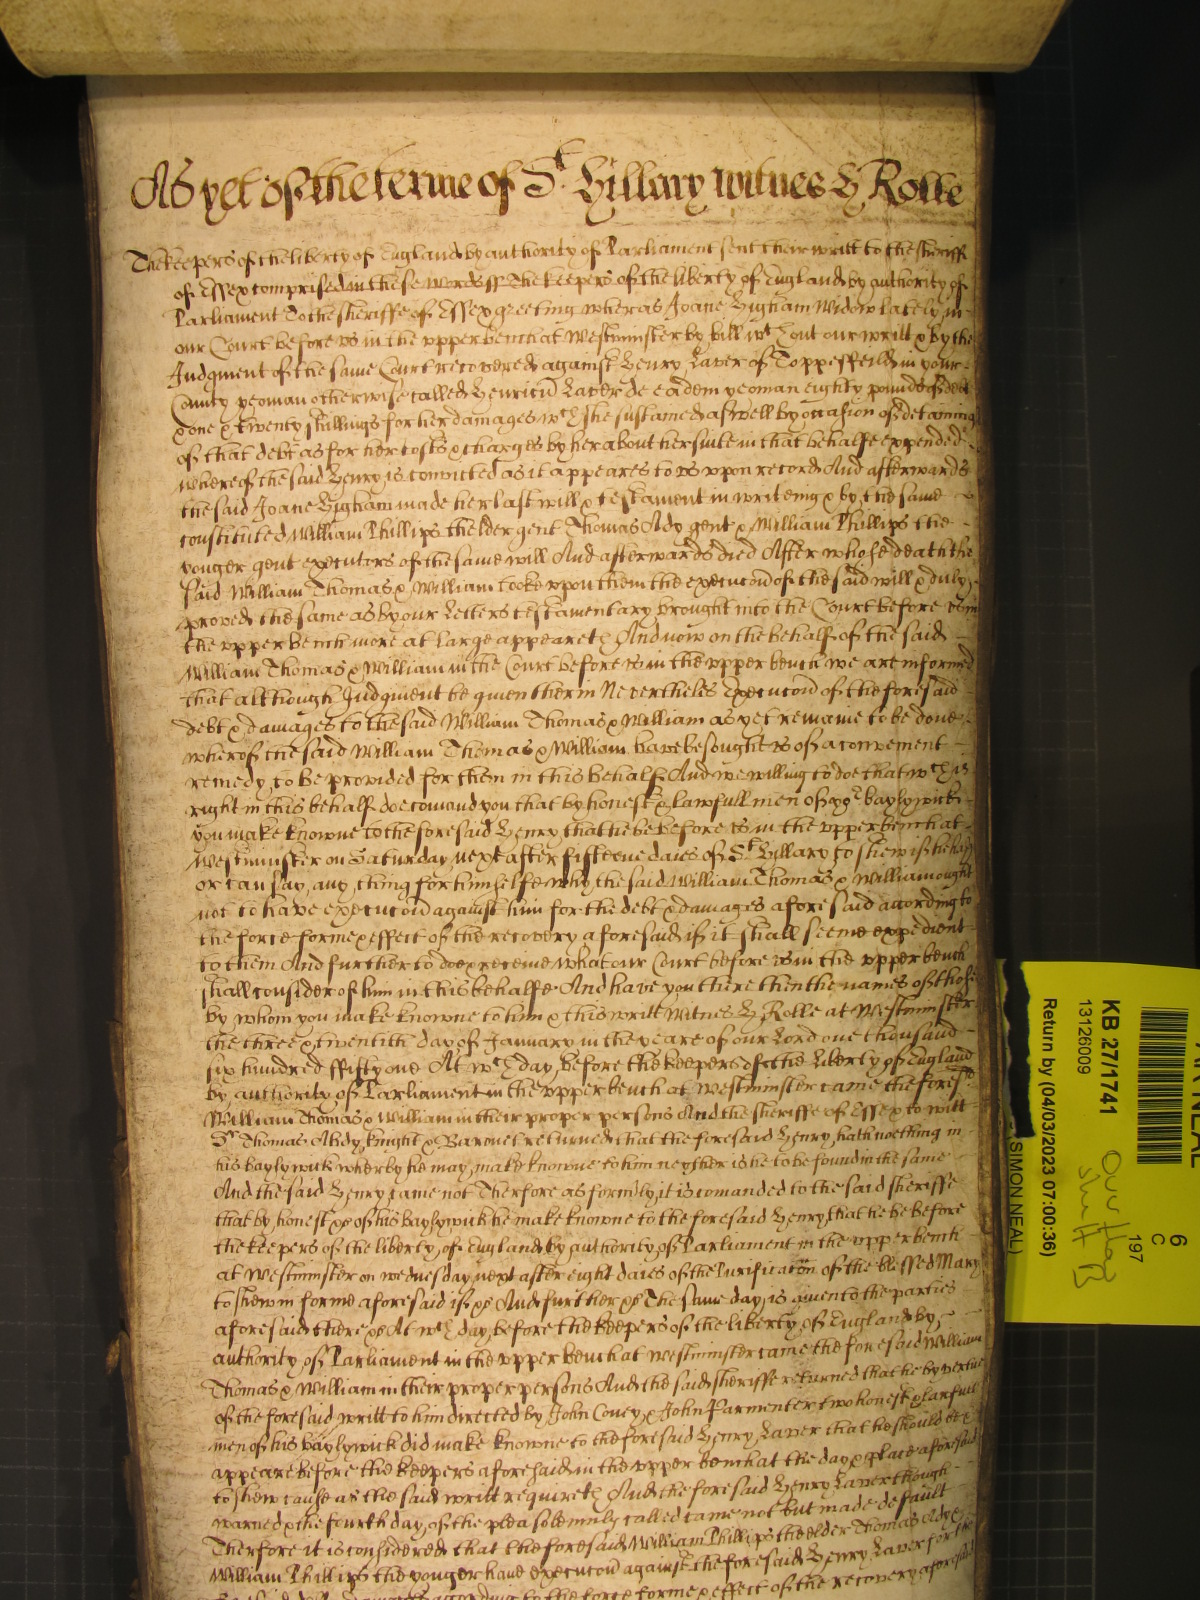 As yet of the terme of St. Hillary witnes H Rolle
The keepers of the liberty of England by authority of Parliament sent their writt to the sheriff
of Essex comprised in these words ss The keepers of the liberty of England by authority of
Parliament To the sheriffe of Essex greeting wheras Joane Higham Widow lately in
our Court before us in the upper bench at Westminster by bill wth out our writt & by the
Judgment of the same Court recovered against Henry Laver of Toppesfeild in your
County yeoman otherwise called Henricu Laver de eadem yeoman eighty pounds of debt
& one & twenty shillings for her damages wch she sustained aswell by occasion of detaining
of that debt as for her costs & charges by her about her suite in that behalfe expended
whereof the said Henry is convicted as it appeares to us upon record And afterwards
the said Joane Higham made her last will & testament in writeing & by the same
constituted William Phillips thelder gent Thomas Ady gent & William Phillips the
yonger gent executors of the same will And afterwards died After whose death the
said William Thomas & William tooke upon them the execucon of the said will & duly
proved the same as by our Letters testamentary brought into the Court before us in
the upper bench more at large appeareth And now on the behalf of the said
William Thomas & William in the Court before us in the upper bench we are informed
that although Judgment be given therin Nevertheles Execucon of the foresaid
debt & damages to the said William Thomas & William as yet remaine to be done
wherof the said William Thomas & William have besought us of a convenient
remedy to be provided for them in this behalf And we willing to doe that wch is
right in this behalf doe comand you that by honest & lawfull men of yor baylywick
you make knowne to the foresaid Henry that he be before us in the upper bench at
Westminster on Saturday next after fifteene daies of St Hillary to shew if he hath
or can say any thing for himselfe why the said William Thomas & William ought
not to have execucon against him for the debt & damages aforesaid according to
the force forme & effect of the recovery aforesaid if it shall seeme expedient
to them And further to doe & receive what our Court before us in the upper bench
shall consider of him in this behalfe And have you there then the names of those
by whom you make knowne to him & this writt Witnes H Rolle at Westminster
the three & twentith day of January in the yeare of our Lord one thousand
six hundred ffifty one At wch day before the keepers of the Liberty of England
by authority of Parliament in the upper bench at Westminster came the foresd
William Thomas & William in their proper persons And the sheriffe of Essex to witt
Sr Thomas Abdy knight & Baronet returned that the foresaid Henry hath noething in
his baylywick wherby he may make knowne to him neyther is he to be found in the same
And the said Henry came not Therfore as formly it is comanded to the said sheriffe
that by honest &c of his baylywick he make knowne to the foresaid Henry that he be before
the keepers of the liberty of England by authority of Parliament in the upper bench
at Westminster on wednesday next after eight daies of the Purificacon of the blessed Mary
to shew in forme aforesaid if &c And further &c The same day is given to the parties
aforesaid there &c At wch day before the keepers of the liberty of England by
authority of Parliament in the upper bench at Westminster came the foresaid William
Thomas & William in their proper persons And the said sheriffe returned that he by vertue
of the foresaid writt to him directed by John Covey & John Parmenter two honest & lawfull
men of his baylywick did make knowne to the foresaid Henry Laver that he should be &
appeare before the keepers aforesaid in the upper bench at the day & place aforesaid
to shew cause as the said writt requireth And the foresaid Henry Laver though
warned & the fourth day of the plea solemnly called came not but made default
Therfore it is considered that the foresaid William Phillips the elder Thomas Adye &
William Phillips the yonger have execucon against the foresaid Henry Laver for the
according to the force forme & effect of the recovery aforesaid
KB 27/1741
13126009
Return by (04/03/2023 07:00:36)
(SIMON NEAL)
6
C
197